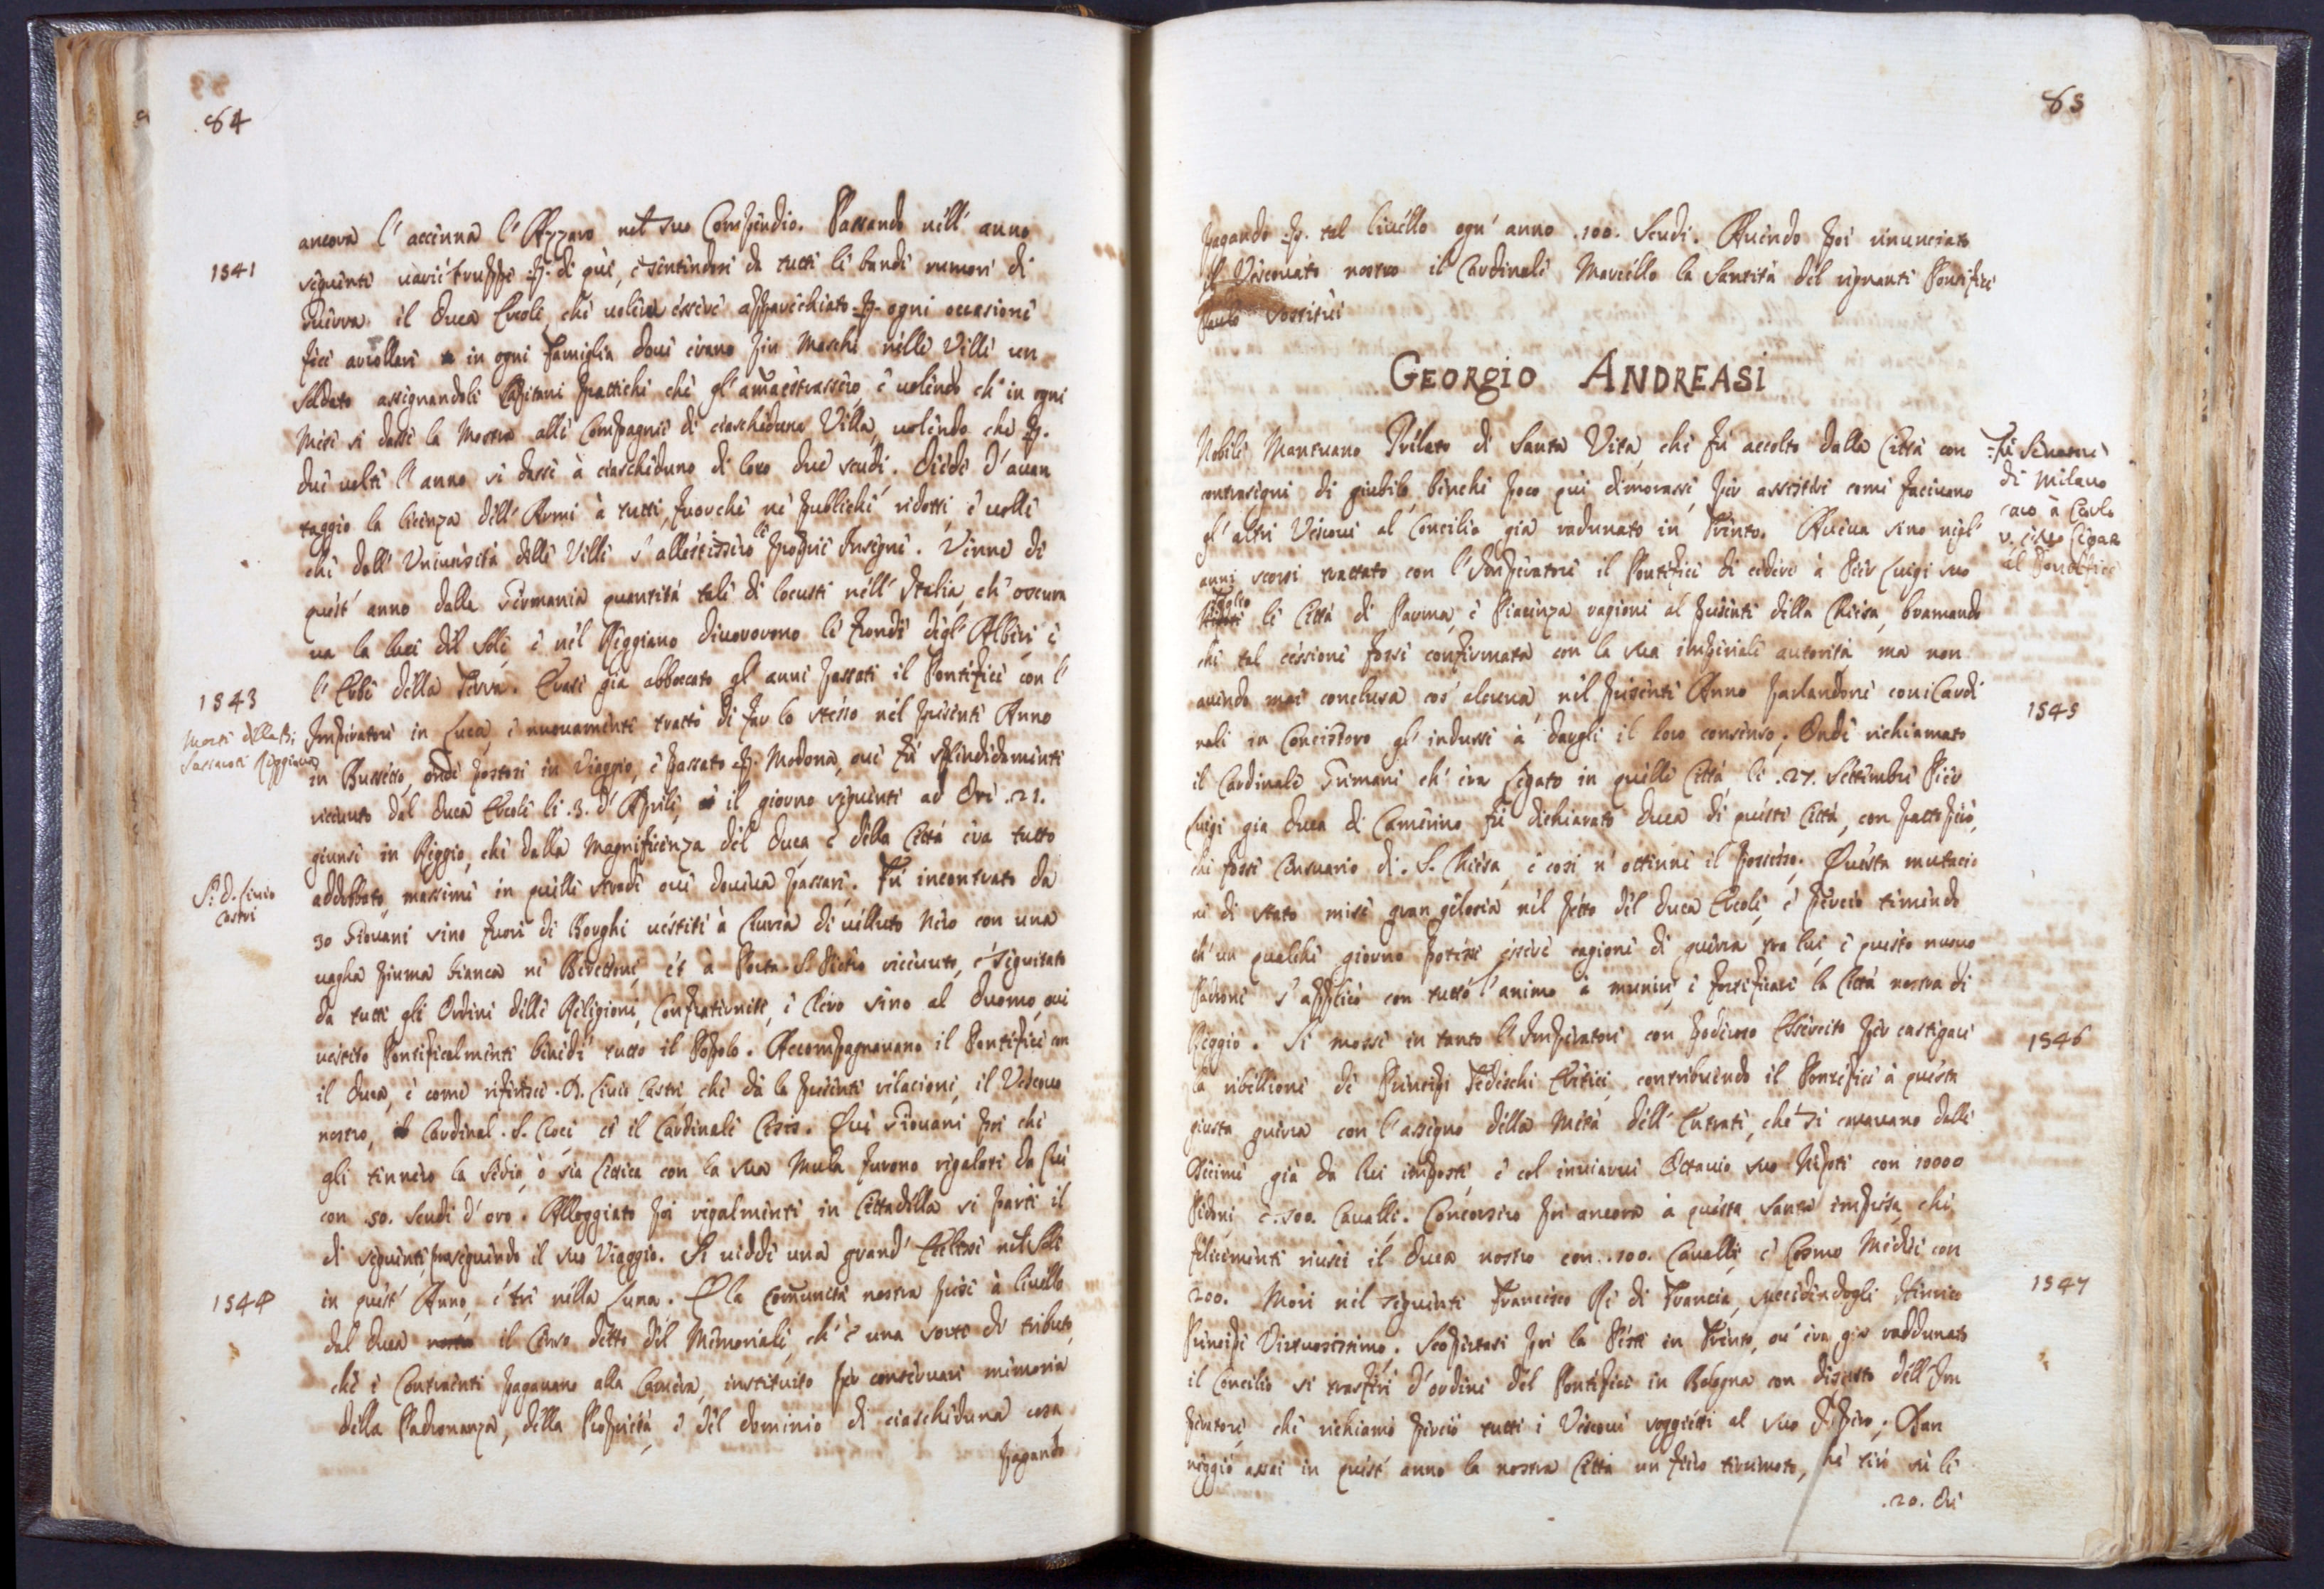 84
ancora l' accenna l' Azzaro nel suo Compendio. Passando nell' anno
1541
seguente varie truppe p. di qui, e sentendosi da tutti li bandi rumori di
Guerra il Duca Ercole, che voleva essere apparecchiato p. ogni occasione
fece arollare in ogni Famiglia dove erano piu Maschi nelle Ville un
Soldato assignandoli Capitani prattichi che gl' amaestrassero, e volendo ch' in ogni
Mese si dasse la Mostra alle Compagnie di ciascheduna Villa, volendo che p.
due volte l' anno si dasse à ciascheduno di loro due scudi. Diede d' avan
taggio la licenza dell' Armi à tutti, fuorche ne publichi ridotti, e volle
che dall' Università delle Ville s' allestissero le proprie Insegne. Venne di
quest' anno dalla Germania quantità tale di locuste nell' Italia, ch' oscura
va la luce del Sole, e nel Reggiano divororono le frondi degl' Alberi, e
l' Erbe della Terra. Erasi già abboccato gl' anni passati il Pontefice con l'
1543
Imperatore in Luca, e nuovamente trattò di far lo stesso nel presente Anno
Morte della B.
in Busseto, onde postosi in Viaggio, e passato p. Modona, ove fù splendidamente
ricevuto dal Duca Ercole li .3. d' Aprile, il giorno seguente ad Ore .21.
giunse in Reggio, che dalla Magnificenza del Duca e della Città era tutto
S.r D. Livio
Castri
addobbato, massime in quelle strade ove doveva passare. Fù incontrato da
30 Giovani sino fuori di Borghi vestiti à Livrea di velluto Nero con una
vagha piuma bianca ne Berettoni, et à Porta S. Pietro ricevuto, e seguitato
da tutti gli Ordini delle Religioni, Confraternite, e Clero sino al Duomo, ove
vestito Pontificalmente benedì tutto il Popolo. Accompagnavano il Pontefice con
il Duca, e come riferisce .D. Livio Castri, che dà la presente relatione, il Vescovo
nostro, il Cardinal .S. Croci et il Cardinale Cesis. Que Giovani poi che
gli tennero la sedia, ò sia Lettica con la sua Mula furono regalati da lui
con .50. scudi d' oro. Alloggiato poi regalmente in Cittadella si partì il
di seguente proseguendo il suo Viaggio. Si vidde una grand' Eclissi nel Sole
1544
in quest' Anno, e tre nella Luna. E la Comunità nostra prese à livello
dal Duca il Censo detto del Memoriale, ch' è una sorte di tributo,
che i Contraenti pagavano alla Camera, instituito per conservare memoria
della Padronanza, della Proprietà, e del dominio di ciascheduna cosa
pagando
85
pagando p. tal livello ogn' anno .100. Scudi. Avendo poi rinunciato
il Vescovato nostro il Cardinale Marcello la Santità del regnante Pontefice
Paulo sostituì
GEORGIO ANDREASI
Nobile Mantuano Prelato di Santa Vita, che fù accolto dalla Città con
Fù Senatore
di Milano
caro à Carlo
contrasegni di giubilo, benche poco qui dimorasse, per assistere come facevano
gl' altri Vescovi al Concilio già radunato in Trento. Aveva sino negl'
anni scorsi trattato con l' Imperatore il Pontefice di cedere à Pier Luigi suo
Figlio le Città di Parma, e Piacenza ragioni al presente della Chiesa, bramando
che tal cessione fosse confirmata con la sua imperiale autorità, ma non
avendo mai conclusa cos' alcuna, nel presente Anno parlandone coni Cardi
1545
nali in Concistoro gl' indusse à dargli il loro consenso; Onde richiamato
il Cardinale Grimani ch' era Legato in quelle Città li .27. Settembre Pier
Luigi gia Duca di Camerino fù dichiarato Duca di queste Città, con patto però,
che fosse Censuario di S. Chiesa, e così n' ottenne il possesso. Questa mutatio
ne di stato mise gran gelosia nel petto del Duca Ercole, e perciò temendo
ch' un qualche giorno potesse essere cagione di guerra tra lui, e questo nuovo
Padrone s' applicò con tutto l' animo à munire, e fortificare la Città nostra di
1546
Reggio. Si mosse in tanto l' Imperatore con poderoso Essercito per castigare
la ribellione di Principi Tedeschi Eretici, contribuendo il Pontefice à questa
giusta guerra con l' assegno della Metà dell' Entrate, che si cavavano dalle
Decime già da lui imposte, e col inviarvi Ottavio suo Nepote con 10000
Pedoni, e .500. Cavalli. Concorsero poi ancora à questa santa impresa, che
felicemente riuscì il Duca nostro con .100. Cavalli, e Cosmo Medici con
1547
200. Morì nel seguente Francesco Re di Francia, succedendogli Henrico
Principe Virtuosissimo. Scopertasi poi la Peste in Trento, ov' era gia raddunato
il Concilio si trasferì d' ordine del Pontefice in Bologna con disgusto dell' Im
peratore, che richiamò perciò tutti i Vescovi soggetti al suo Impero; Dan
neggiò assai in quest' anno la nostra Città un fiero teremoto, li
.20. Che